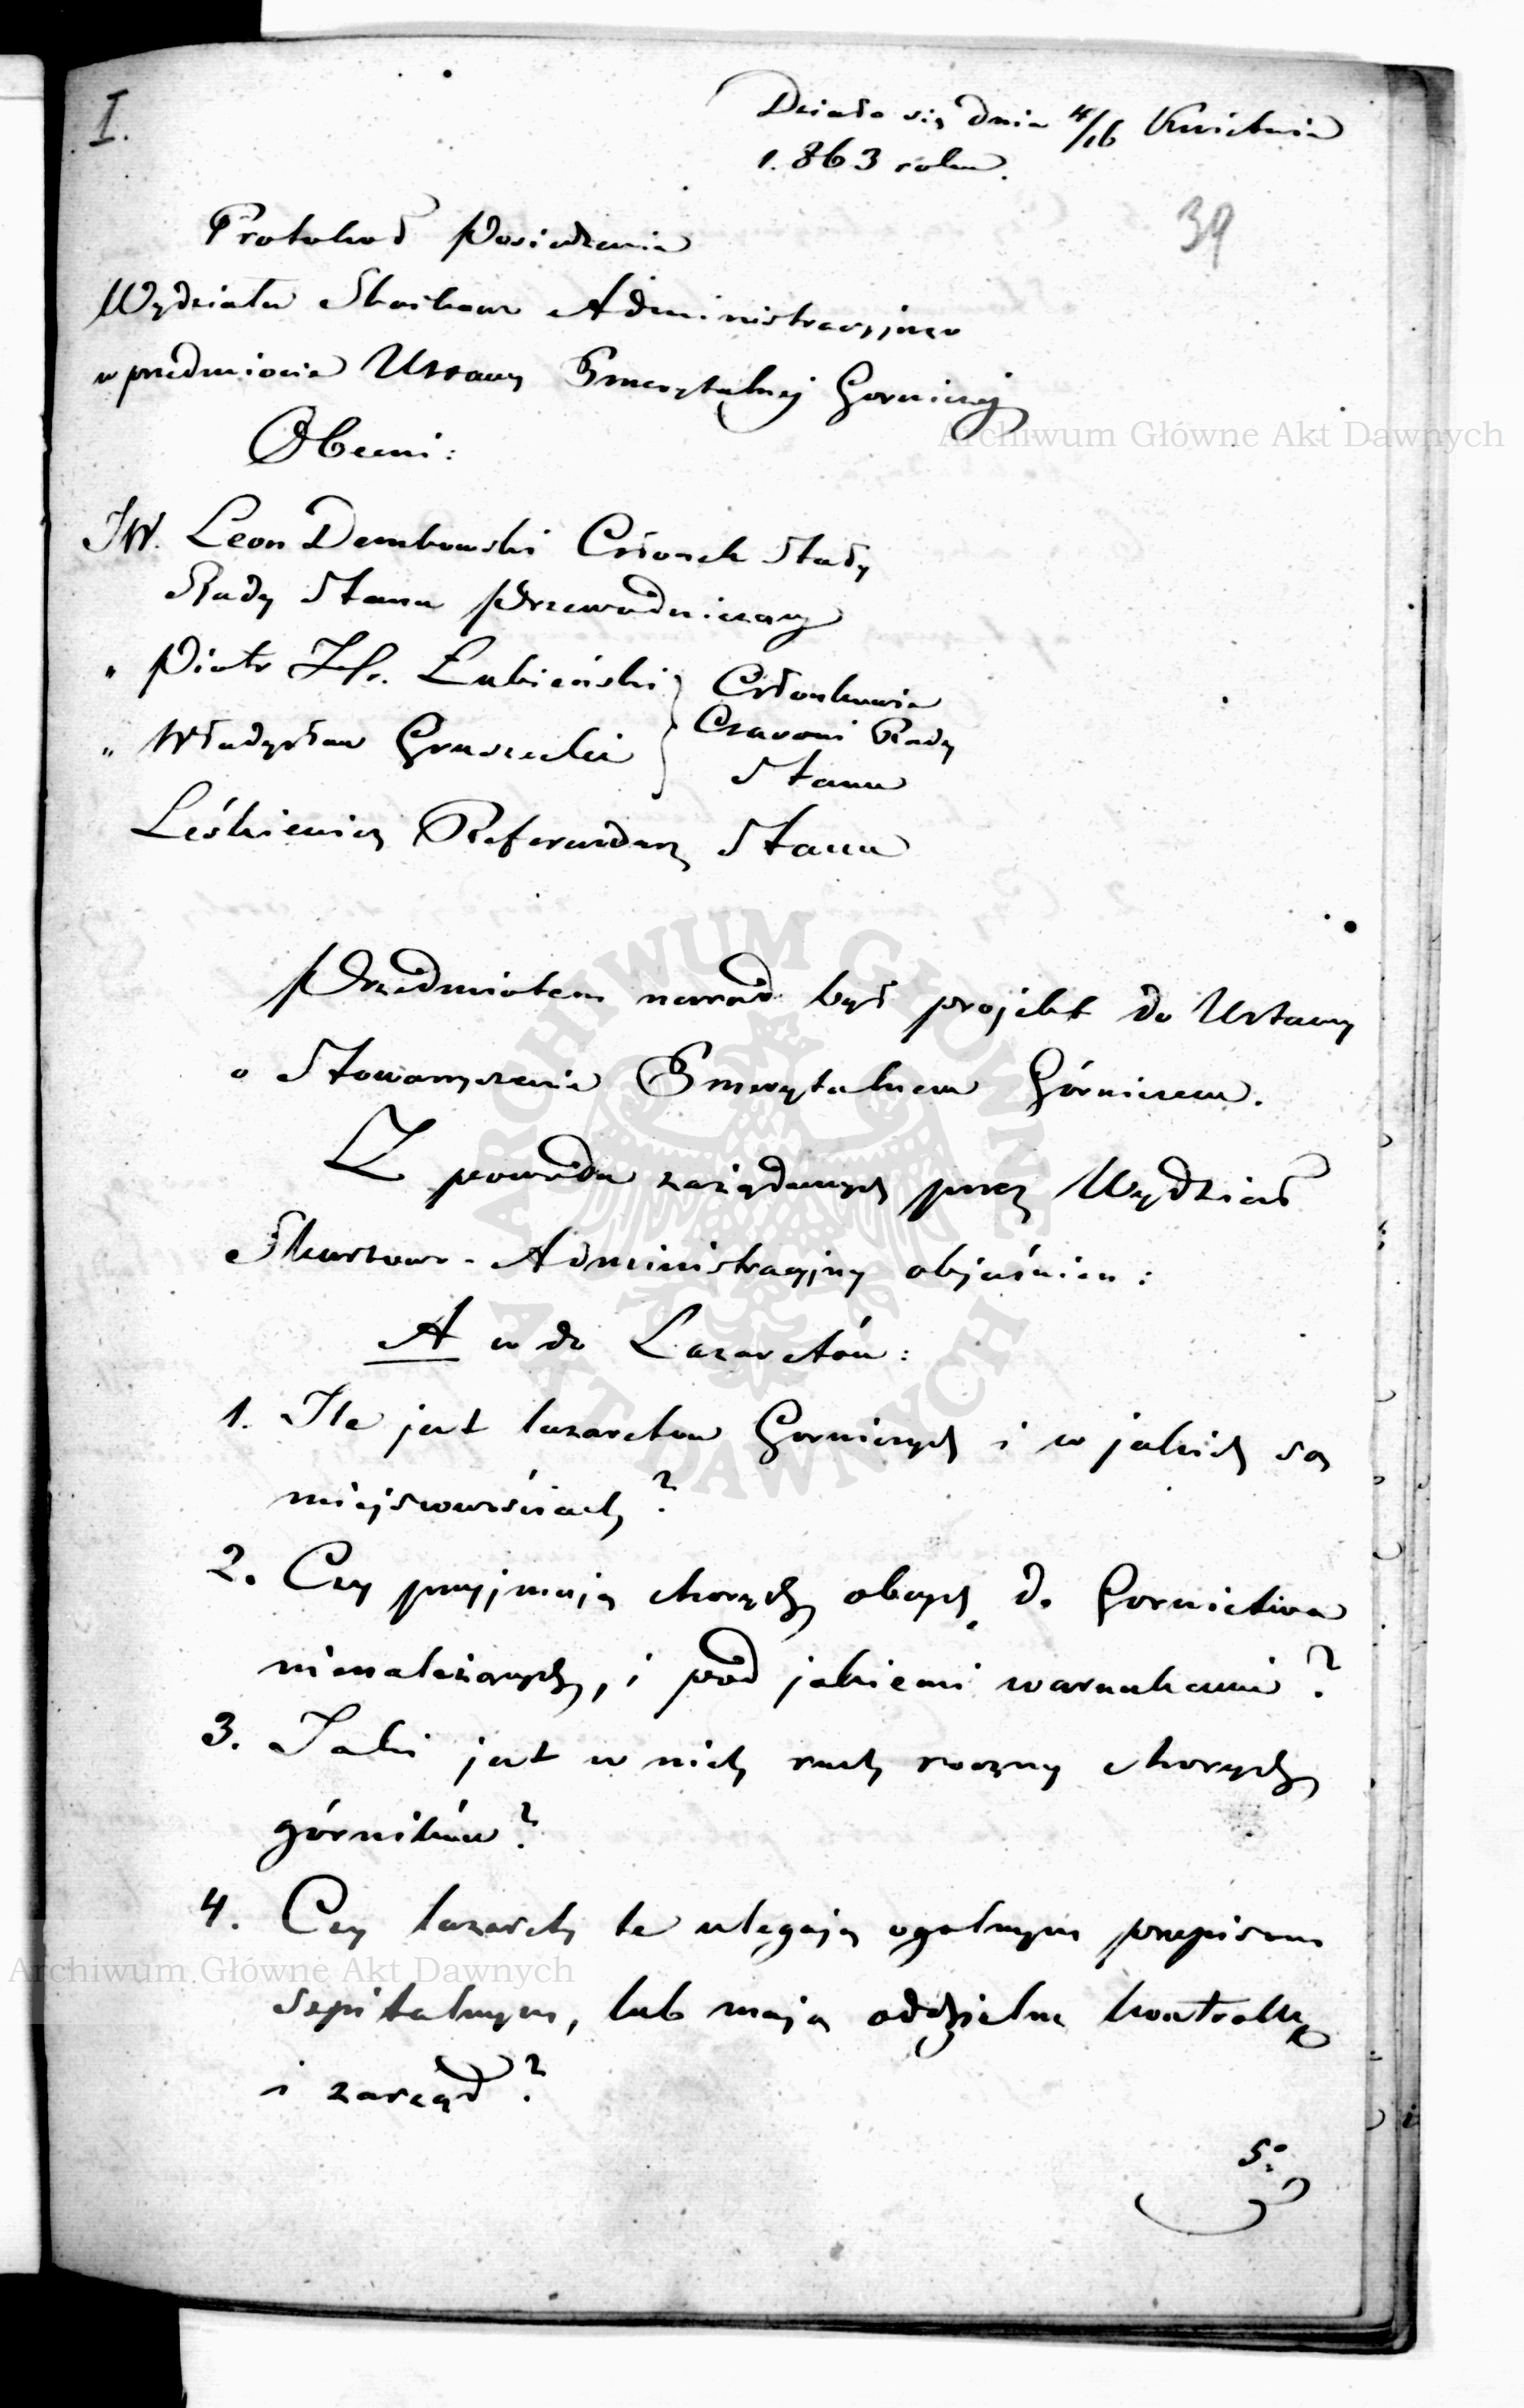 I.
Działo się dnia 4/16 Kwietnia
1.863 roku.
39
Protokoł Posiedzenia
Wydziału Skarbowo Administracyjnego
w przedmiocie Ustawy Emerytalnej Gorniczej
Obecni:
JW. Leon Dembowski Członek Stały
Rady Stanu Przewodniczący
" Piotr Hr. Łubieński } Członkowie
" Władysław Gruszecki } Czasowi Rady
Stanu
Leśkiewicz Referendarz Stanu
Przedmiotem narad był projekt do Ustawy
o Stowarzyszeniu Emerytalnem Górniczem.
Z powodu zażądanych przez Wydział
Skarbowo-Administracyjny objaśnień:
A co do Lazaretów:
1. Ile jest lazaretow Gorniczych i w jakich są
miejscowościach?
2. Czy przyjmują chorych obcych do Gornictwa
nienależących, i pod jakiemi warunkami?
3. Jaki jest w nich ruch roczny chorych
górników?
4. Czy lazarety te ulegają ogolnym przepisom
szpitalnym, lub mają oddzielną kontrollę
i zarząd?
5o
Archiwum Główne Akt Dawnych
ARCHIWUM GŁÓWNE AKT DAWNYCH
Archiwum Główne Akt Dawnych